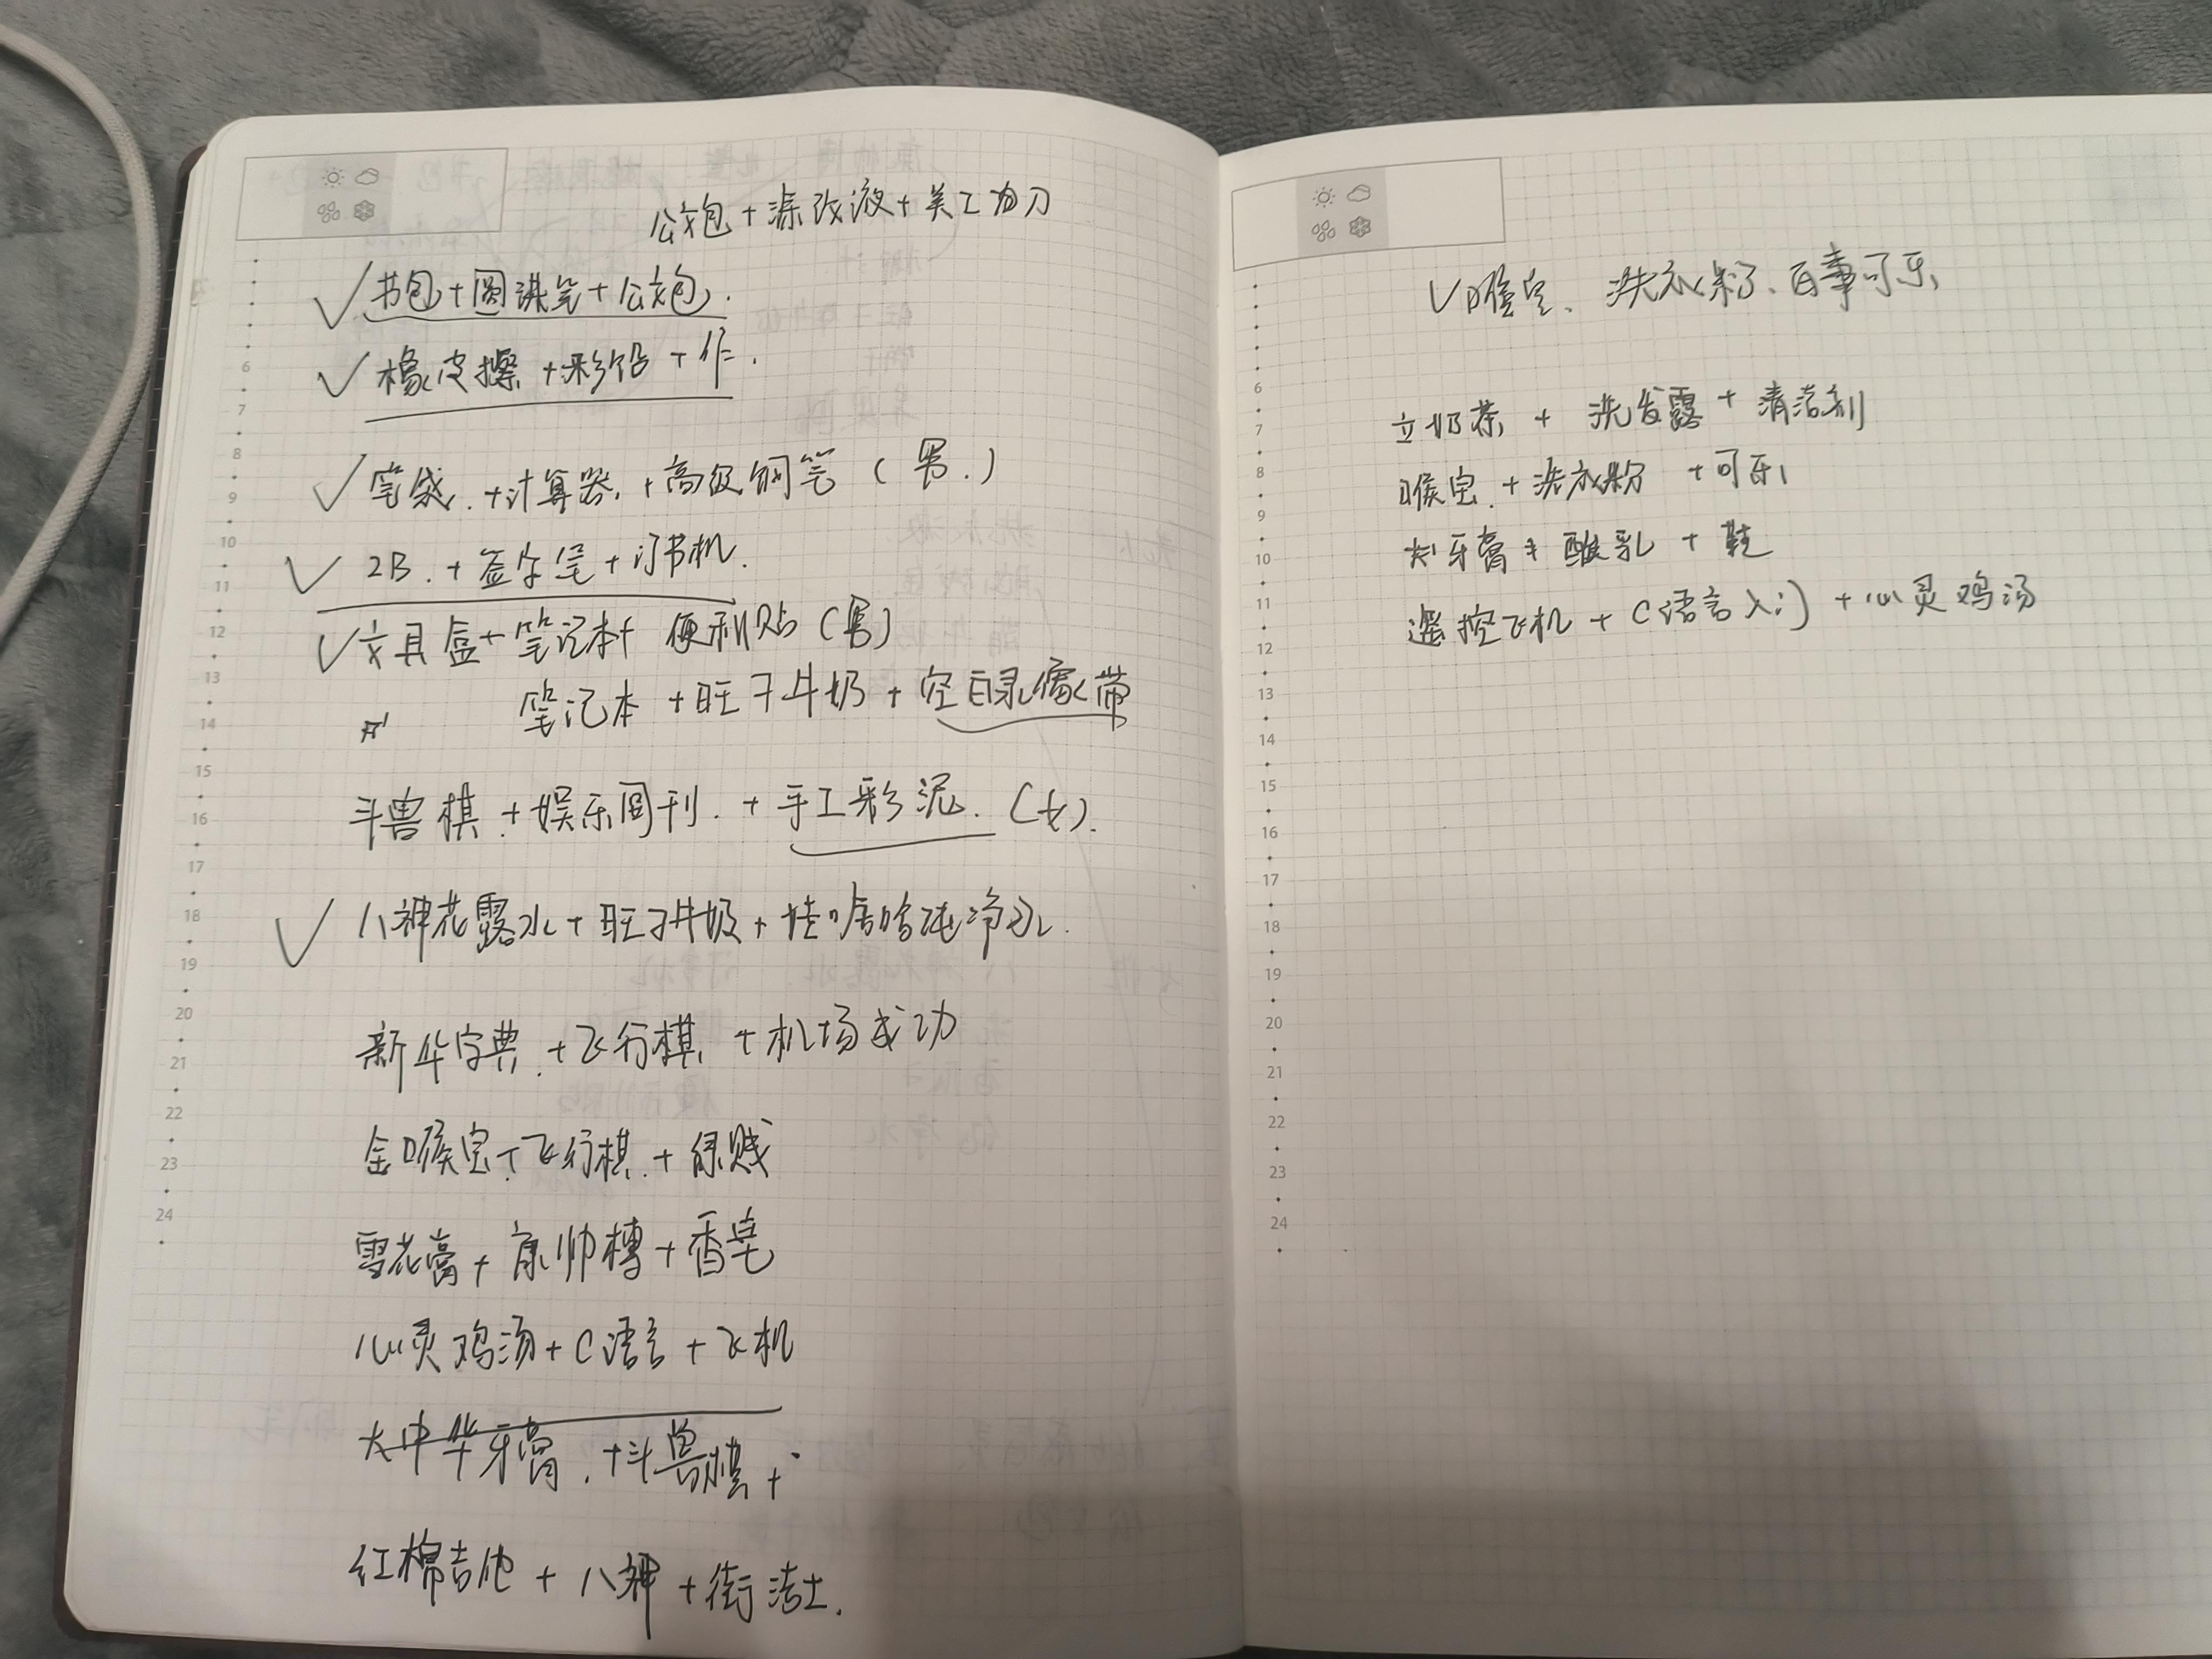 公文包+涤改液+美工刀
书包+圆珠笔+公文包.
橡皮擦+彩铅+作.
笔袋.+计算器.+高级钢笔(男.)
2B.+签字笔+订书机.
文具盒+笔记本+便利贴(男)
笔记本+旺子牛奶+空白录像带
斗兽棋.+娱乐周刊.+手工彩泥.(女).
八神花露水+旺子牛奶+娃哈哈纯净水.
新华字典.+飞行棋.+机场成功
金喉宝+飞行棋.+绿贱
雪花膏+康帅博+香皂
心灵鸡汤+C语言+飞机
大中华牙膏.+斗兽棋+
红棉吉他+八神+街洁士.
喉宝、洗衣粉、百事可乐
6
7
8
9
10
11
12
13
14
15
16
17
18
19
20
21
22
23
24
立奶茶+洗发露+清洁剂
喉宝.+洗衣粉+可乐
牙膏+酸乳+鞋
遥控飞机+C语言入门+心灵鸡汤
6
7
8
9
10
11
12
13
14
15
16
17
18
19
20
21
22
23
24